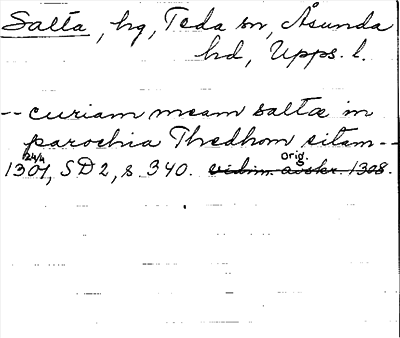 Salta, hg, Teda sn, Åsunda
hd, Upps. l.
-- curiam meam saltæ in
parochia Thedhom sitam --
24/4 orig.
1301, SD 2, s. 340. vidim. avskr. 1308.